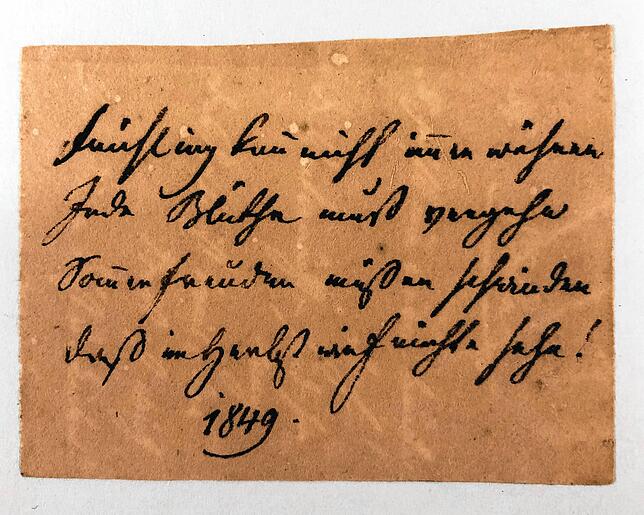 Frühling kan nicht imer währen
Jede Blüthe muß vergehn
Somerfreuden müßen schwinden
daß im Herbst wir Früchte sehn!
1849.